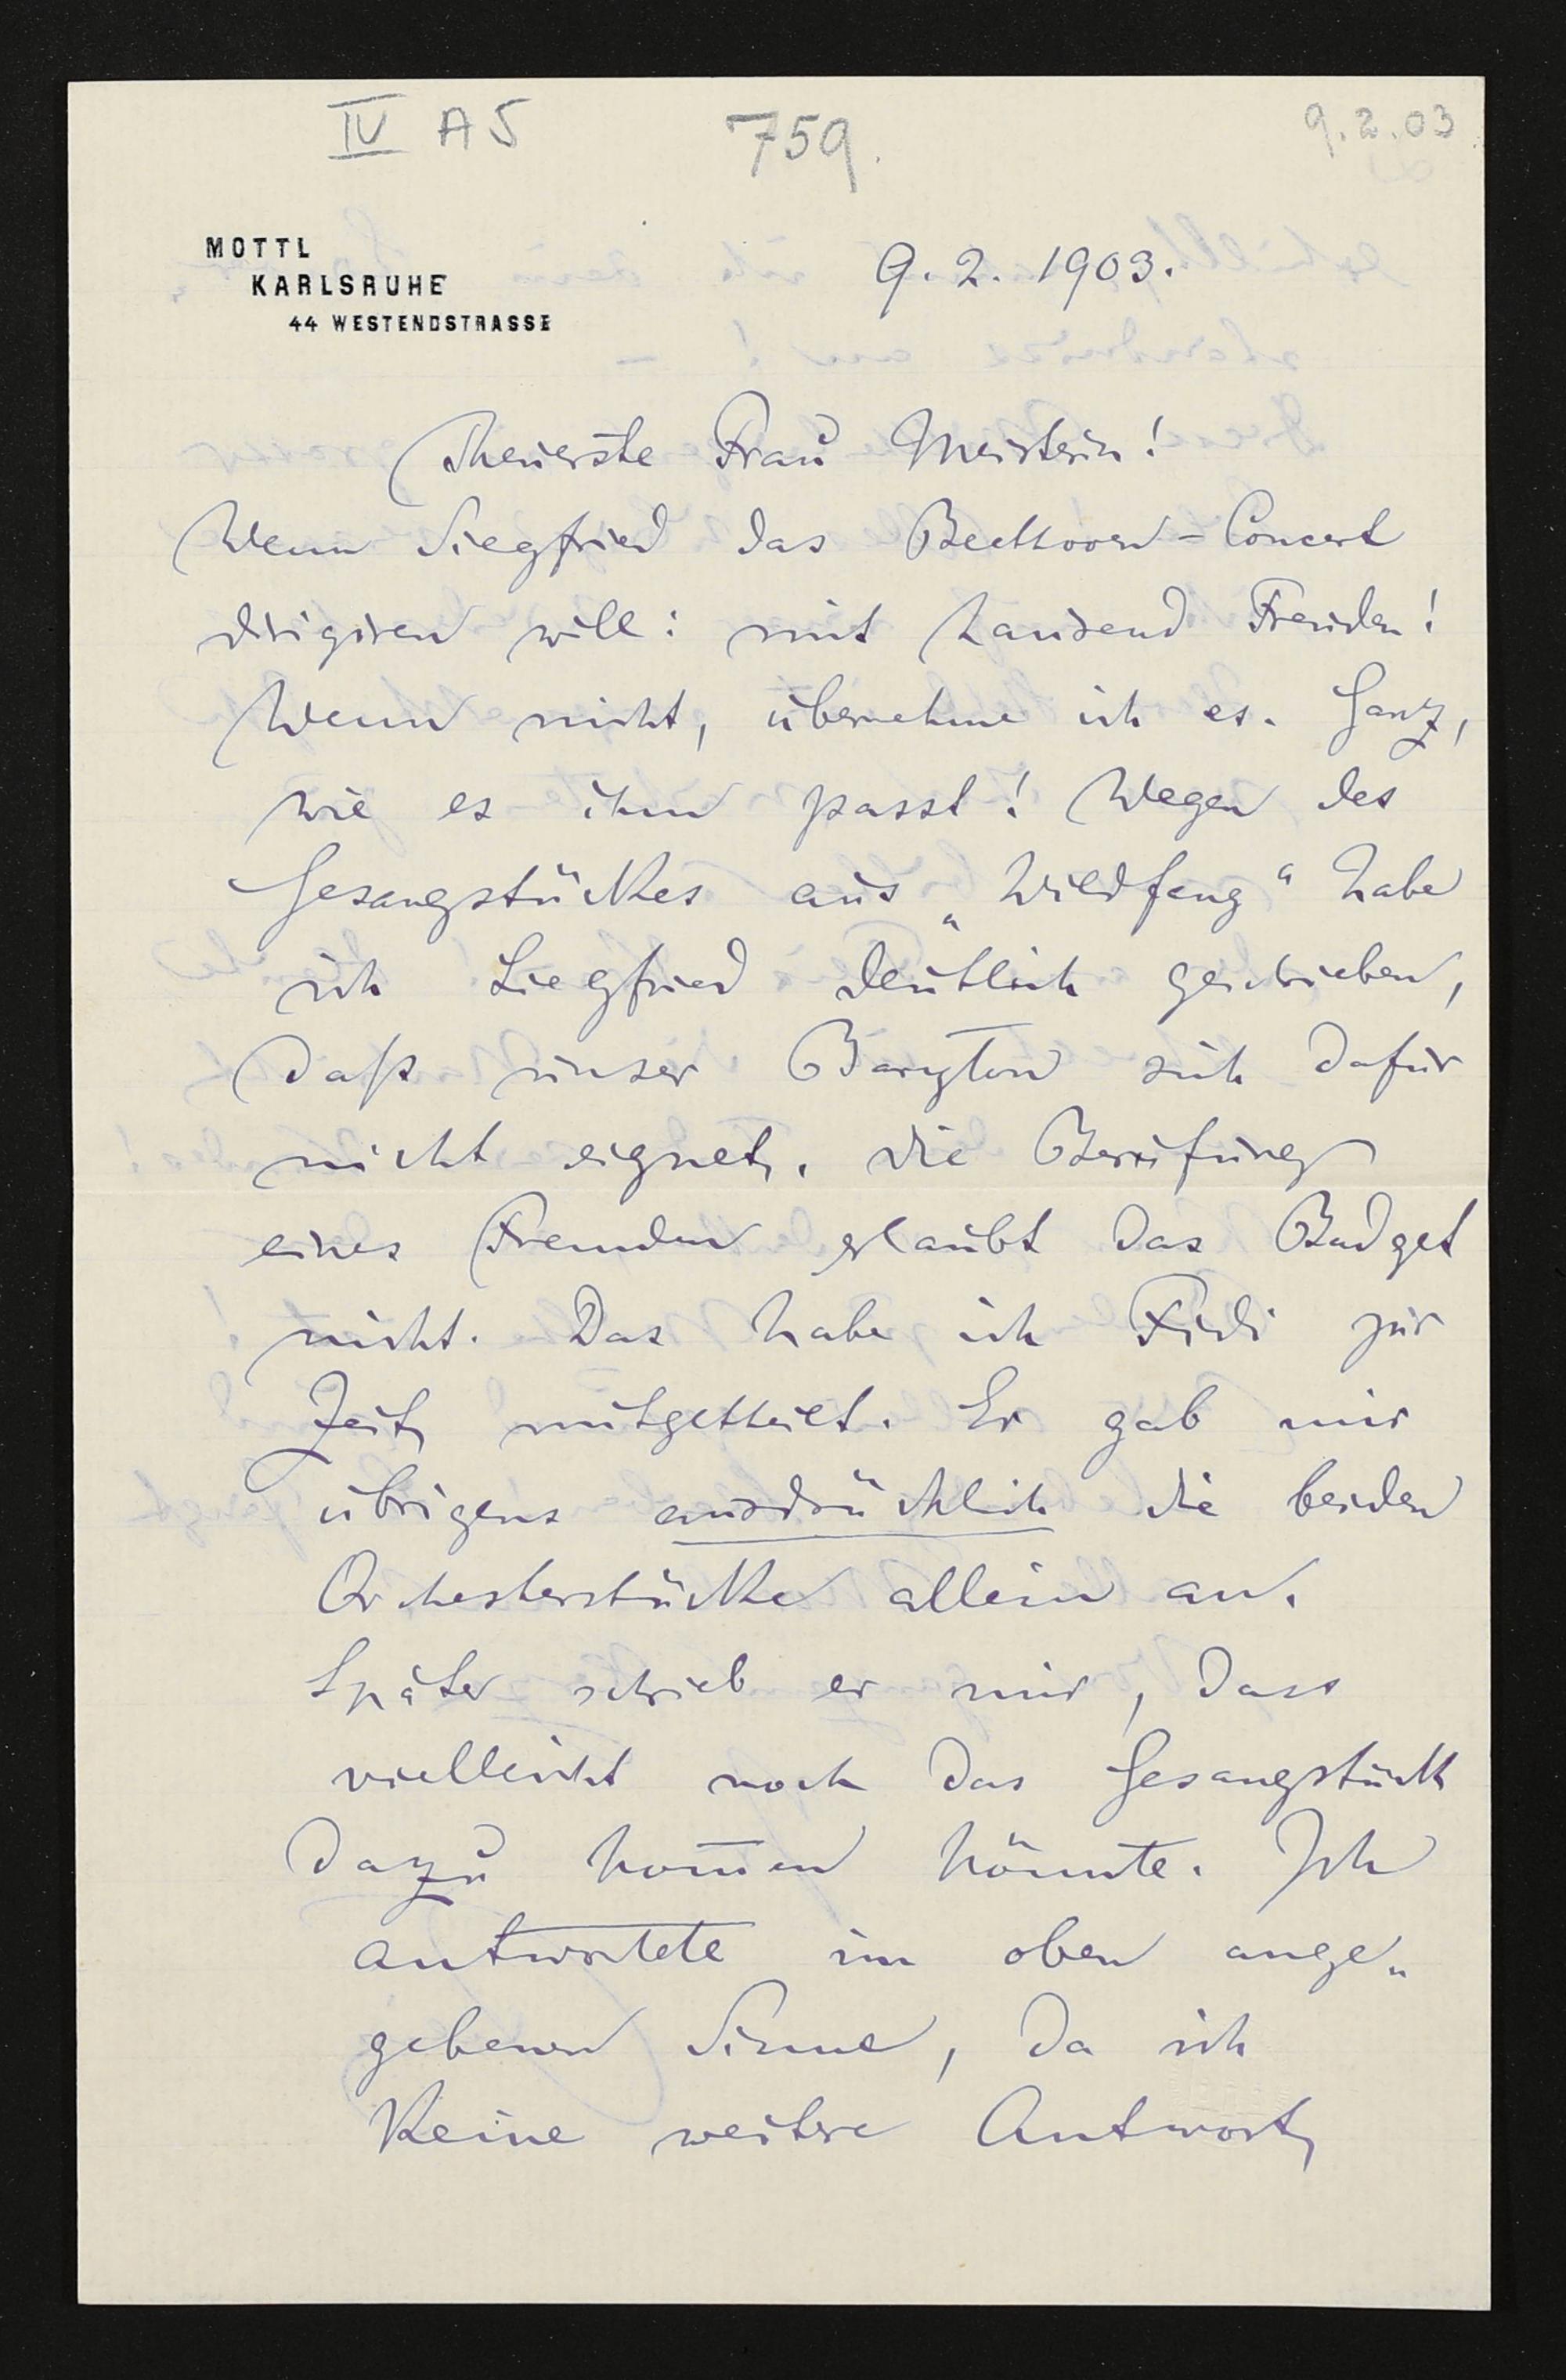 IV A 5
759.
9.2.03
MOTTL
KARLSRUHE
44 WESTENDSTRASSE
9. 2. 1903.
Theuerste Frau Meisterin!
Wenn Siegfried das Beethoven-Concert
dirigiren will: mit tausend Freuden!
Wenn nicht, übernehme ich es. Ganz,
wie es ihm passt! Wegen des
Gesangstückes aus „Wildfang“ habe
ich Siegfried deutlich geschrieben,
daß unser Baryton sich dafür
nicht eignet. Die Berufung
eines Fremden erlaubt das Budget
nicht. Das habe ich Fidi zur
Zeit mitgetheilt. Er gab mir
übrigens ausdrücklich die beiden
Orchesterstücke allein an.
Später schrieb er mir, dass
vielleicht noch das Gesangstück
dazu kom̄en könnte. Ich
antwortete im oben ange„
gebenen Sinne, da ich
keine weitere Antwort